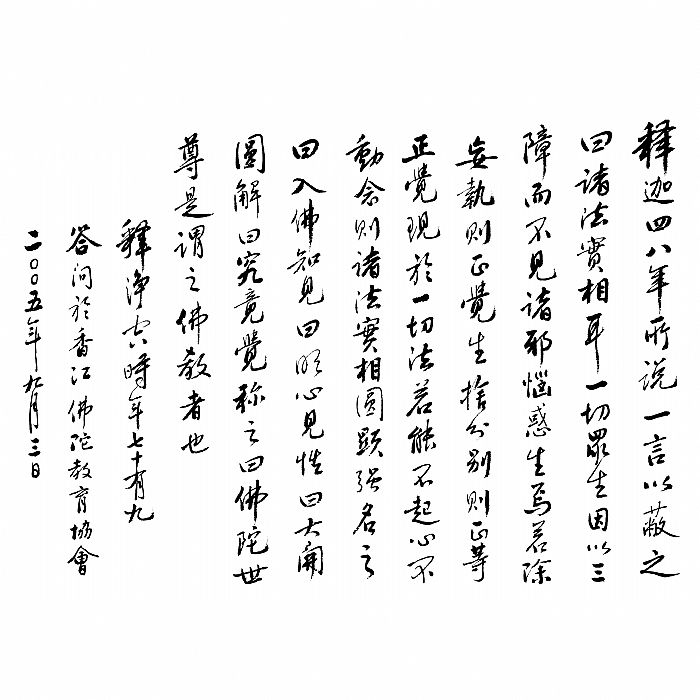 釋迦四八年所説一言以蔽之
曰諸法實相耳一切眾生因以三
障而不見諸邪惱惑生焉若除
妄執則正覺生捨分別則正等
正覺現於一切法若能不起心不
動念則諸法實相圓顯強名之
曰入佛知見曰明心見性曰大開
圓解曰究竟覺稱之曰佛陀世
尊是謂之佛教者也
釋淨空時年七十有九
答问於香江佛陀教育協會
二〇〇五年九月三日